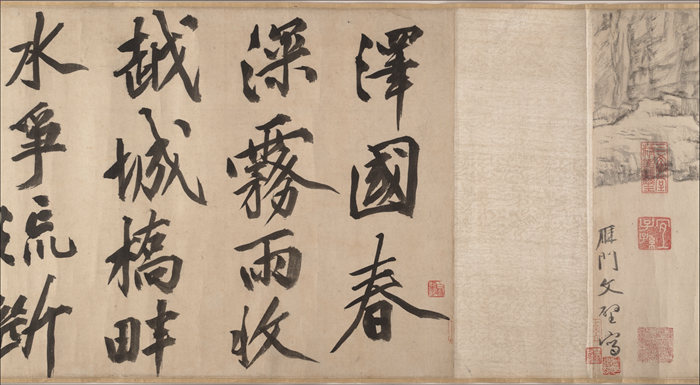 雁門文壁寫
澤國春
深霧雨收
越城橋畔
水爭流斷